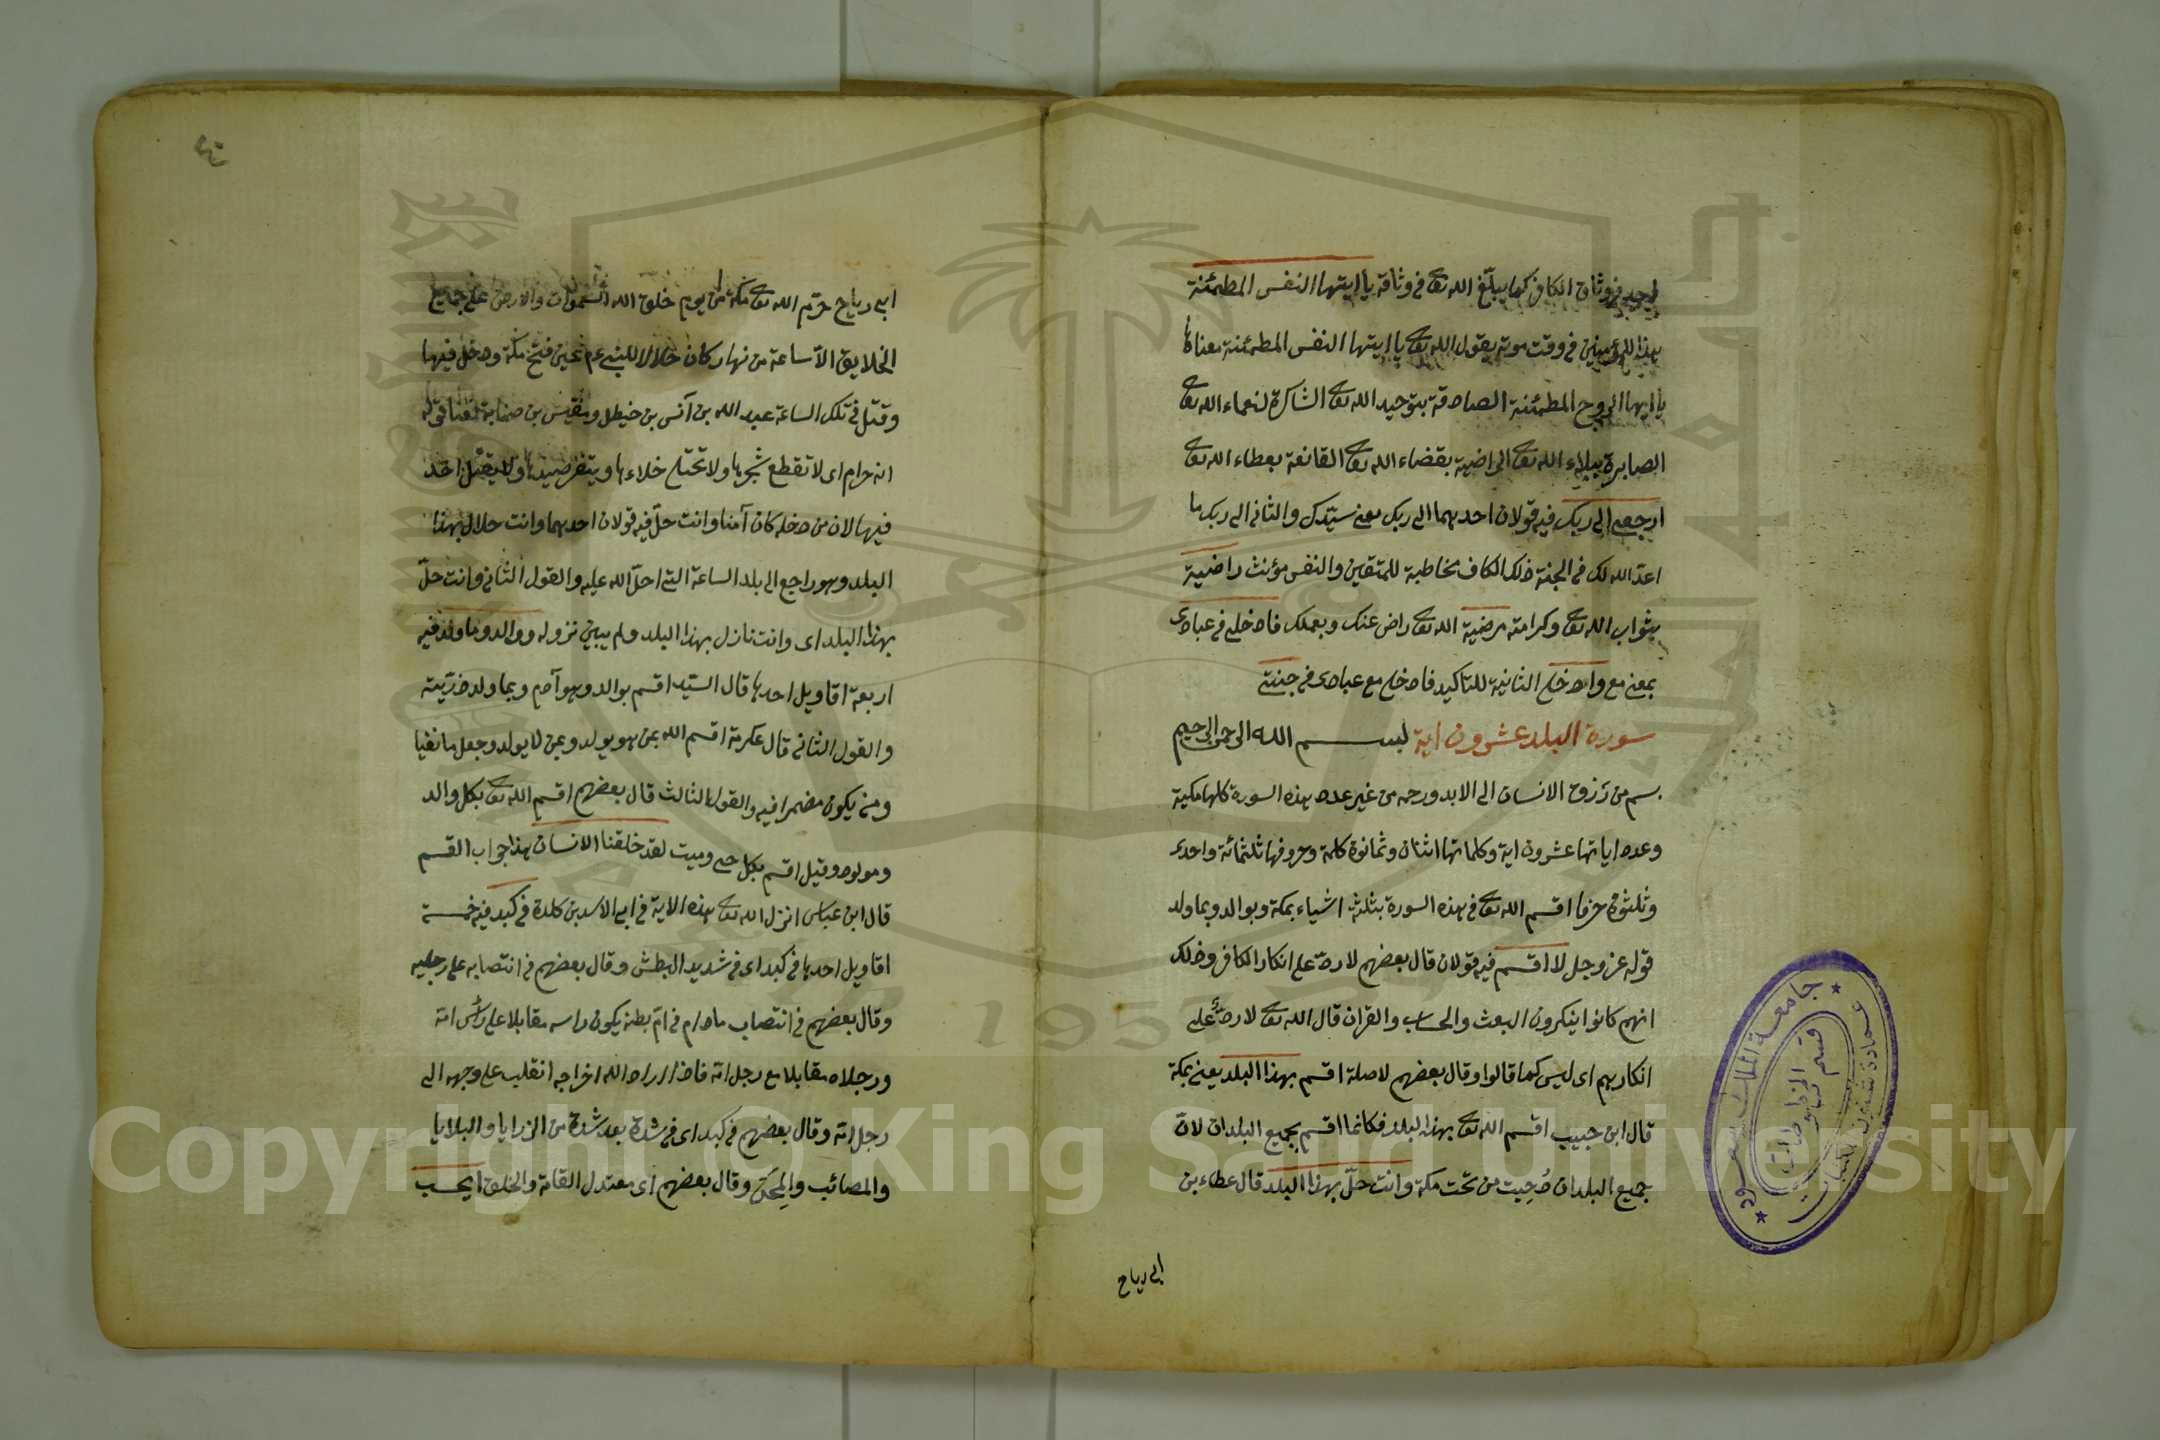 في وثاق الكافر كما يبلّغ الله تعا في وثاقه يا ايتها النفس المطمئنة
في وقت موته يقول الله تعا يا ايتها النفس المطمئنة معناها
يا ايها الروح المطمئنة الصادقة بتوحيد الله تعا الشاكرة لنعماء الله تعا
الصابرة ببلاء الله تعا الراضية بقضاء الله تعا القانعة بعطاء الله تعا
ارجعى الى ربك فيه قولان احدهما الى ربك معنى سيّدك والثانى الى ربك ما
اعدّ الله لك فى الجنة ذلك الكاف مخاطبة للمتقين والنفس مؤنث راضية
بثواب الله تعا وكرامته مرضية الله تعا راض عنك وبعملك فادخلى فى عبادى
بمعنى مع وادخلى الثانية للتاكيد فادخلى مع عبادى فى جنتى
سورة البلد عشرون اية بسم الله الرحمن الرحيم
بسم من رزق الانسان الى الابد ورحمه من غير عدد هذه السورة كلها مكية
وعدد اياتها عشرون اية وكلماتها اثنان وثمانون كلمة وحروفها ثلثمائة واحدى
وثلثون حرفا اقسم الله تعا فى هذه السورة بثلثة اشياء بمكة وبوالد وبما ولد
قوله عز وجل لا اقسم فيه قولان قال بعضهم لا ردّ على انكار الكافر وذلك
انهم كانوا ينكرون البعث والحساب والقران قال الله تعا لا ردّ على
انكارهم اى ليس كما قالوا وقال بعضهم لا صلة اقسم بهذا البلد يعنى بمكة
قال ابن حبيب اقسم الله تعا بهذا البلد فكانما اقسم بجميع البلدان لانّ
جميع البلدان دُحِيت من تحت مكة وانت حلّ بهذا البلد قال عطاء بن
ابى رباح
ابى رباح حرّم الله تعا مكة من يوم خلق الله السموات والارض على جميع
الخلايق الاّ ساعة من نهار كان حلالا للنبى عم حين فتح مكة ودخل فيها
وقتل فى تلك الساعة عبد الله بن آنس بن خيطل ومقيس بن صبابة
انه حرام اى لا تقطع شجرها ولا تختلى خلاءها ويتنفر صيدها ولا يقتل احد
فيها لان من دخله كان آمنا وانت حلّ فيه قولان احدهما وانت حلال بهذا
البلد وهو راجع الى بلد الساعة التى احلّ الله عليه والقول الثانى وانت حلّ
بهذا البلد اى وانت نازل بهذا البلد ولم يبيّن نزوله ووالد وما ولد فيه
اربعة اقاويل احدها قال السّيد اقسم بوالد وهو آدم وبما ولد ذرّيته
والقول الثانى قال عكرمة اقسم الله بمن هو يولد وبمن لا يولد وجعل ما نفيا
ومن يكون مضمرا فيه والقول الثالث قال بعضهم اقسم الله تعا بكل والد
ومولود وقيل اقسم بكل حى وميت لقد خلقنا الانسان هذا جواب القسم
قال ابن عباس انزل الله تعا هذه الاية فى ابى الاسد بن كلدة فى كبد فيه خمسة
اقاويل احدها فى كبد اى فى شديد البطش وقال بعضهم فى انتصابه على رجليه
وقال بعضهم فى انتصاب مادام فى امّ بطنه يكون راسه مقابلا على رأس امّه
ورجلاه مقابلا مع رجل امّه فاذا اراد الله اخراجه انقلب على وجهه الى
رجل امّه وقال بعضهم فى كبد اى فى شدة بعد شدة من الرزايا والبلايا
والمصائب والمِحَن وقال بعضهم اى معتدل القامة والخلق ايحسب
جامعة الملك سعود
عمادة شئون المكتبات
قسم المخطوطات
1957
Copyright © King Saud University